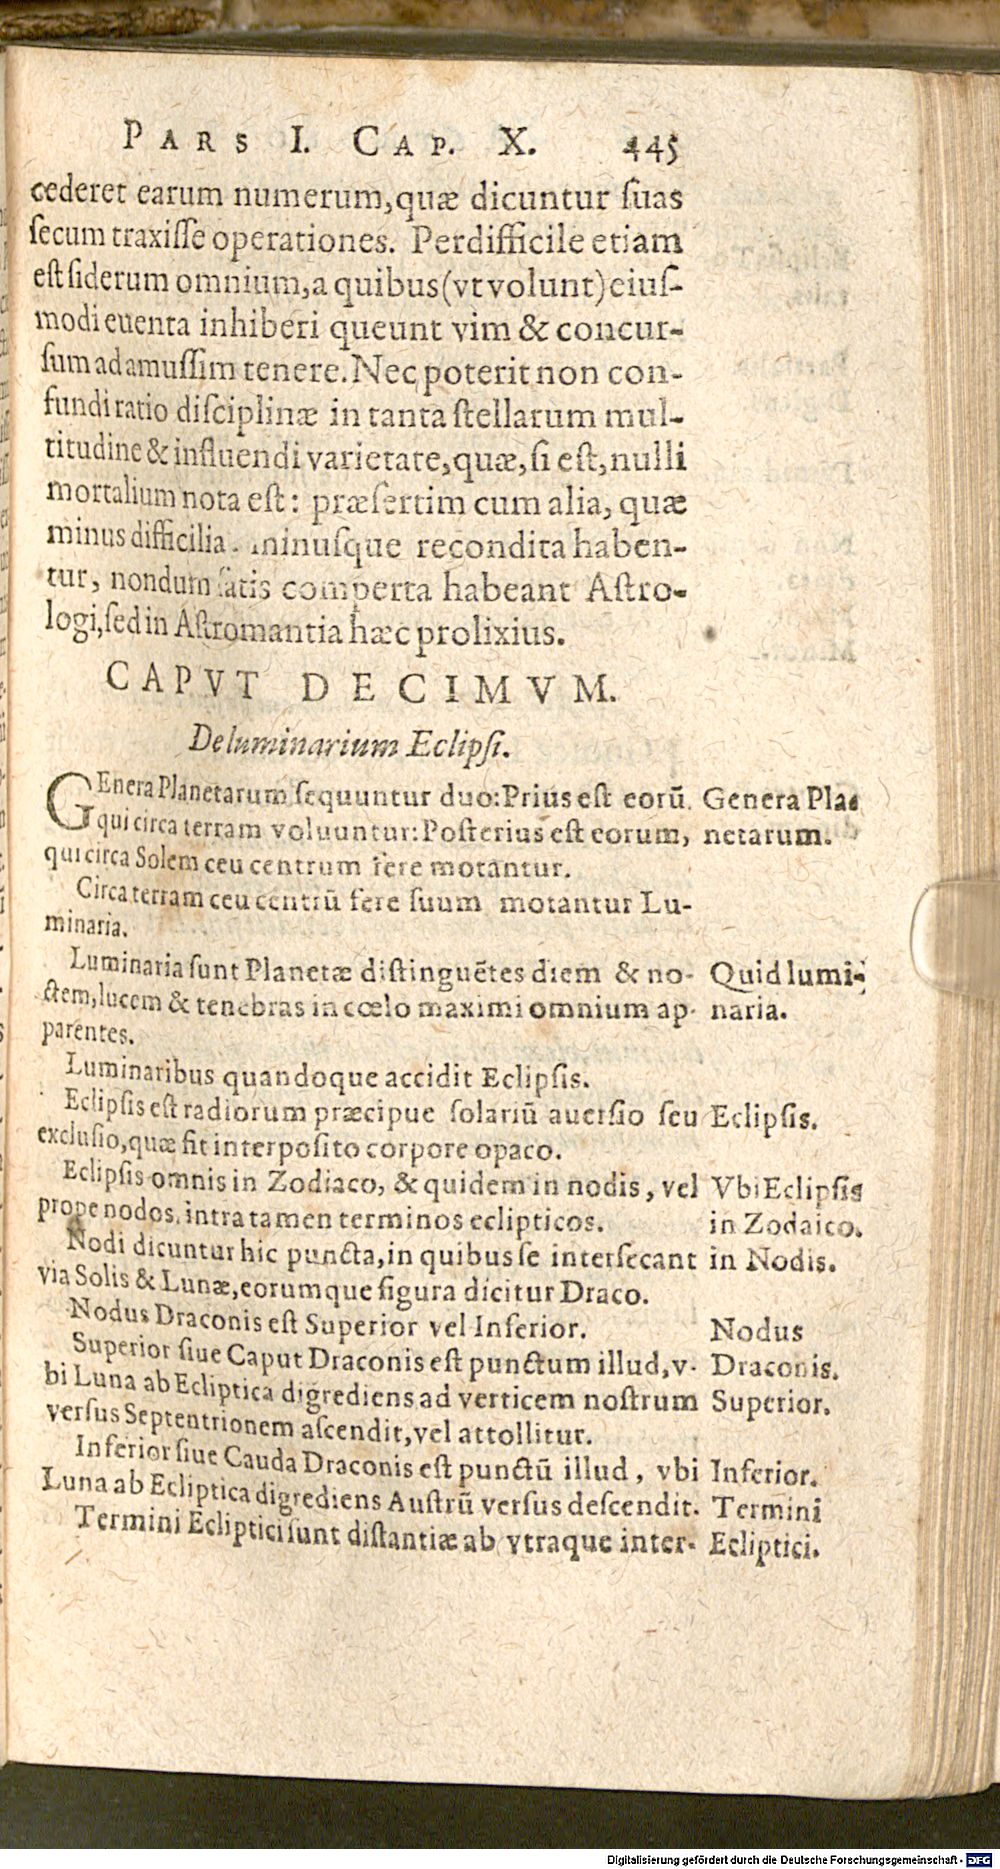 PARS I. CAP. X. 445
cederet earum numerum,quæ dicuntur ſuas
ſecum traxiſſe operationes. Perdifficile etiam
eſt ſiderum omnium,a quibus(vt volunt)eiuſ-
modi euenta inhiberi queunt vim & concur-
ſum ad amuſſim tenere. Nec poterit non con-
fundi ratio diſciplinæ in tanta ſtellarum mul-
titudine & influendi varietate,quæ,ſi eſt,nulli
mortalium nota eſt: præſertim cum alia, quæ
minus difficilia minuſque recondita haben-
tur, nondum ſatis comperta habeant Aſtro-
logi,ſed in Aſtromantia hæc prolixius.
CAPVT DECIMVM.
De luminarium Eclipſi.
GEnera Planetarum ſequuntur duo:Prius eſt eorū Genera Pla-
qui circa terram voluuntur:Poſterius eſt eorum, netarum.
qui circa Solem ceu centrum fere motantur.
Circa terram ceu centrū fere ſuum motantur Lu-
minaria.
Luminaria ſunt Planetæ diſtinguētes diem & no- Quid lumi-
ctem,lucem & tenebras in cœlo maximi omnium ap- naria.
parentes.
Luminaribus quandoque accidit Eclipſis.
Eclipſis eſt radiorum præcipue ſolariū auerſio ſeu Eclipſis.
excluſio,quæ fit interpoſito corpore opaco.
Eclipſis omnis in Zodiaco, & quidem in nodis, vel Vbi Eclipſis
prope nodos, intra tamen terminos eclipticos. in Zodaico.
Nodi dicuntur hic puncta,in quibus ſe interſecant in Nodis.
via Solis & Lunæ,eorumque figura dicitur Draco.
Nodus Draconis eſt Superior vel Inferior. Nodus
Superior ſiue Caput Draconis eſt punctum illud,v- Draconis.
bi Luna ab Ecliptica digrediens ad verticem noſtrum Superior.
verſus Septentrionem aſcendit,vel attollitur.
Inferior ſiue Cauda Draconis eſt punctū illud, vbi Inferior.
Luna ab Ecliptica digrediens Auſtrū verſus deſcendit. Termini
Termini Ecliptici ſunt diſtantiæ ab vtraque inter- Ecliptici.
Digitalisierung gefördert durch die Deutsche Forschungsgemeinschaft - DFG